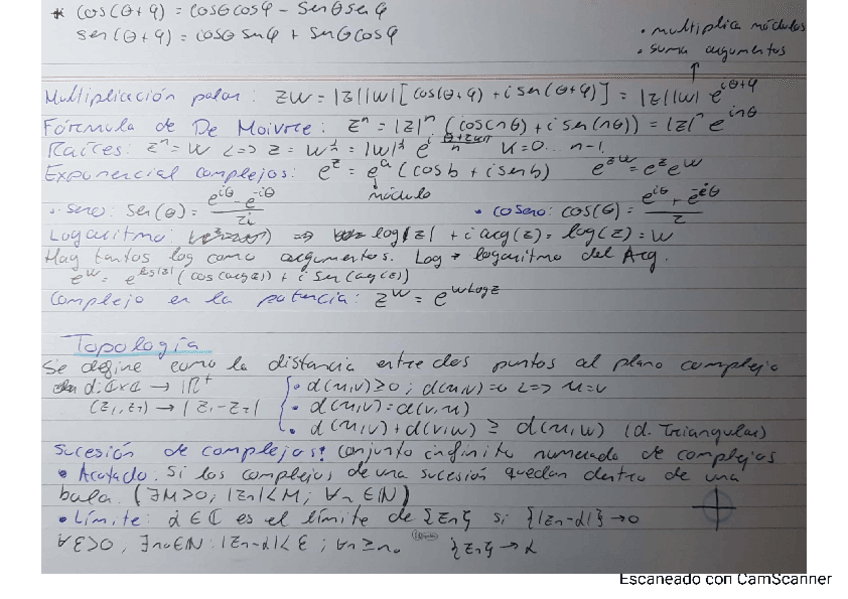 * cos(θ+φ) = cosθcosφ - senθsenφ
sen(θ+φ) = cosθ senφ + senθcosφ
• multiplica módulos
• suma argumentos
Multiplicación polar: zw = |z||w| [cos(θ+φ) + i sen(θ+φ)] = |z||w| e^{iθ+φ}
Fórmula de De Moivre: zⁿ = |z|ⁿ (cos(nθ) + i sen(nθ)) = |z|ⁿ e^{inθ}
Raíces: zⁿ = w <=> z = w^{1/n} = |w|^{1/n} e^{i(θ+2kπ)/n} k=0...n-1
Exponencial complejos: e^z = e^a (cosb + isenb) e^{zw} = e^z e^w
módulo
• seno: sen(θ) = (e^{iθ} - e^{-iθ})/2i • coseno: cos(θ) = (e^{iθ} + e^{-iθ})/2
Logaritmo: => log|z| + i arg(z) = log(z) = w
Hay tantos log como argumentos. Log → logaritmo del Arg.
e^w = e^{log|z|} (cos(arg z)) + i sen(arg(z))
Complejo en la potencia: z^w = e^{wLogz}
Topología
Se define como la distancia entre dos puntos al plano complejo
d: ℂxℂ → ℝ⁺ • d(u,v) ≥ 0 ; d(u,v) = 0 <=> u = v
(z₁,z₂) → |z₁-z₂| • d(u,v) = d(v,u)
• d(u,v) + d(v,w) ≥ d(u,w) (d. Triangular)
Sucesión de complejos: conjunto infinito numerado de complejos
• Acotado: Si los complejos de una sucesión quedan dentro de una
bola. (∃M>0, |zn|<M; ∀n∈ℕ)
• Límite: α ∈ ℂ es el límite de {zn} si {|zn-α|} → 0
∀ε>0, ∃n₀∈ℕ: |zn-α|<ε ; ∀n≥n₀ {zn} → α
Escaneado con CamScanner